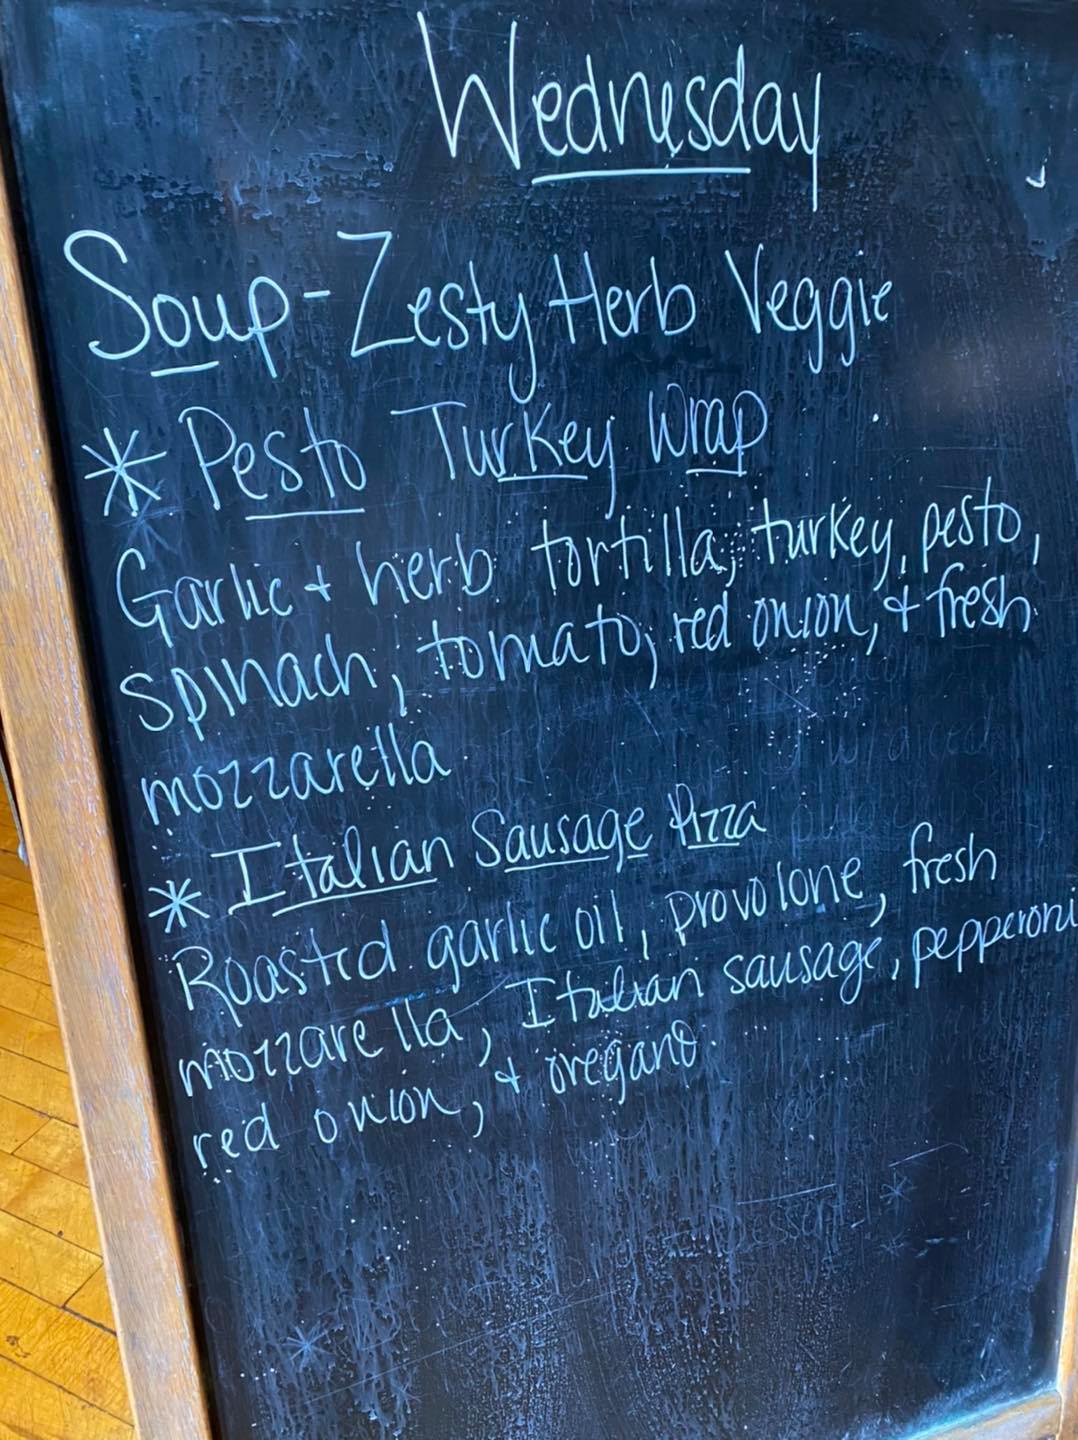 Wednesday
Soup - Zesty Herb Veggie
* Pesto Turkey Wrap
Garlic + herb tortilla, turkey, pesto,
spinach, tomato, red onion, + fresh
mozzarella
* Italian Sausage Pizza
Roasted garlic oil, provolone, fresh
mozzarella, Italian sausage, pepperoni
red onion, + oregano